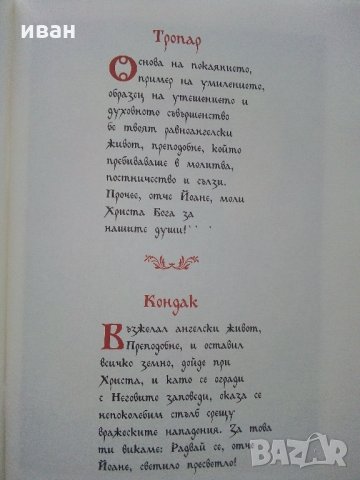 иван
Тропар
Основа на покаянието,
пример на умилението,
образец на утешението и
духовното съвършенство
бе твоят равноангелски
живот, преподобне, който
пребиваваше в молитва,
постничество и сълзи.
Прочее, отче Йоане, моли
Христа Бога за
нашите души!
Кондак
Възжелал ангелски живот,
Преподобне, и оставил
всичко земно, дойде при
Христа, и като се огради
с Неговите заповеди, оказа се
непоколебим стълб срещу
вражеските нападения. За това
ти викаме: Радвай се, отче
Йоане, светило пресветло!
BAZAR
bg